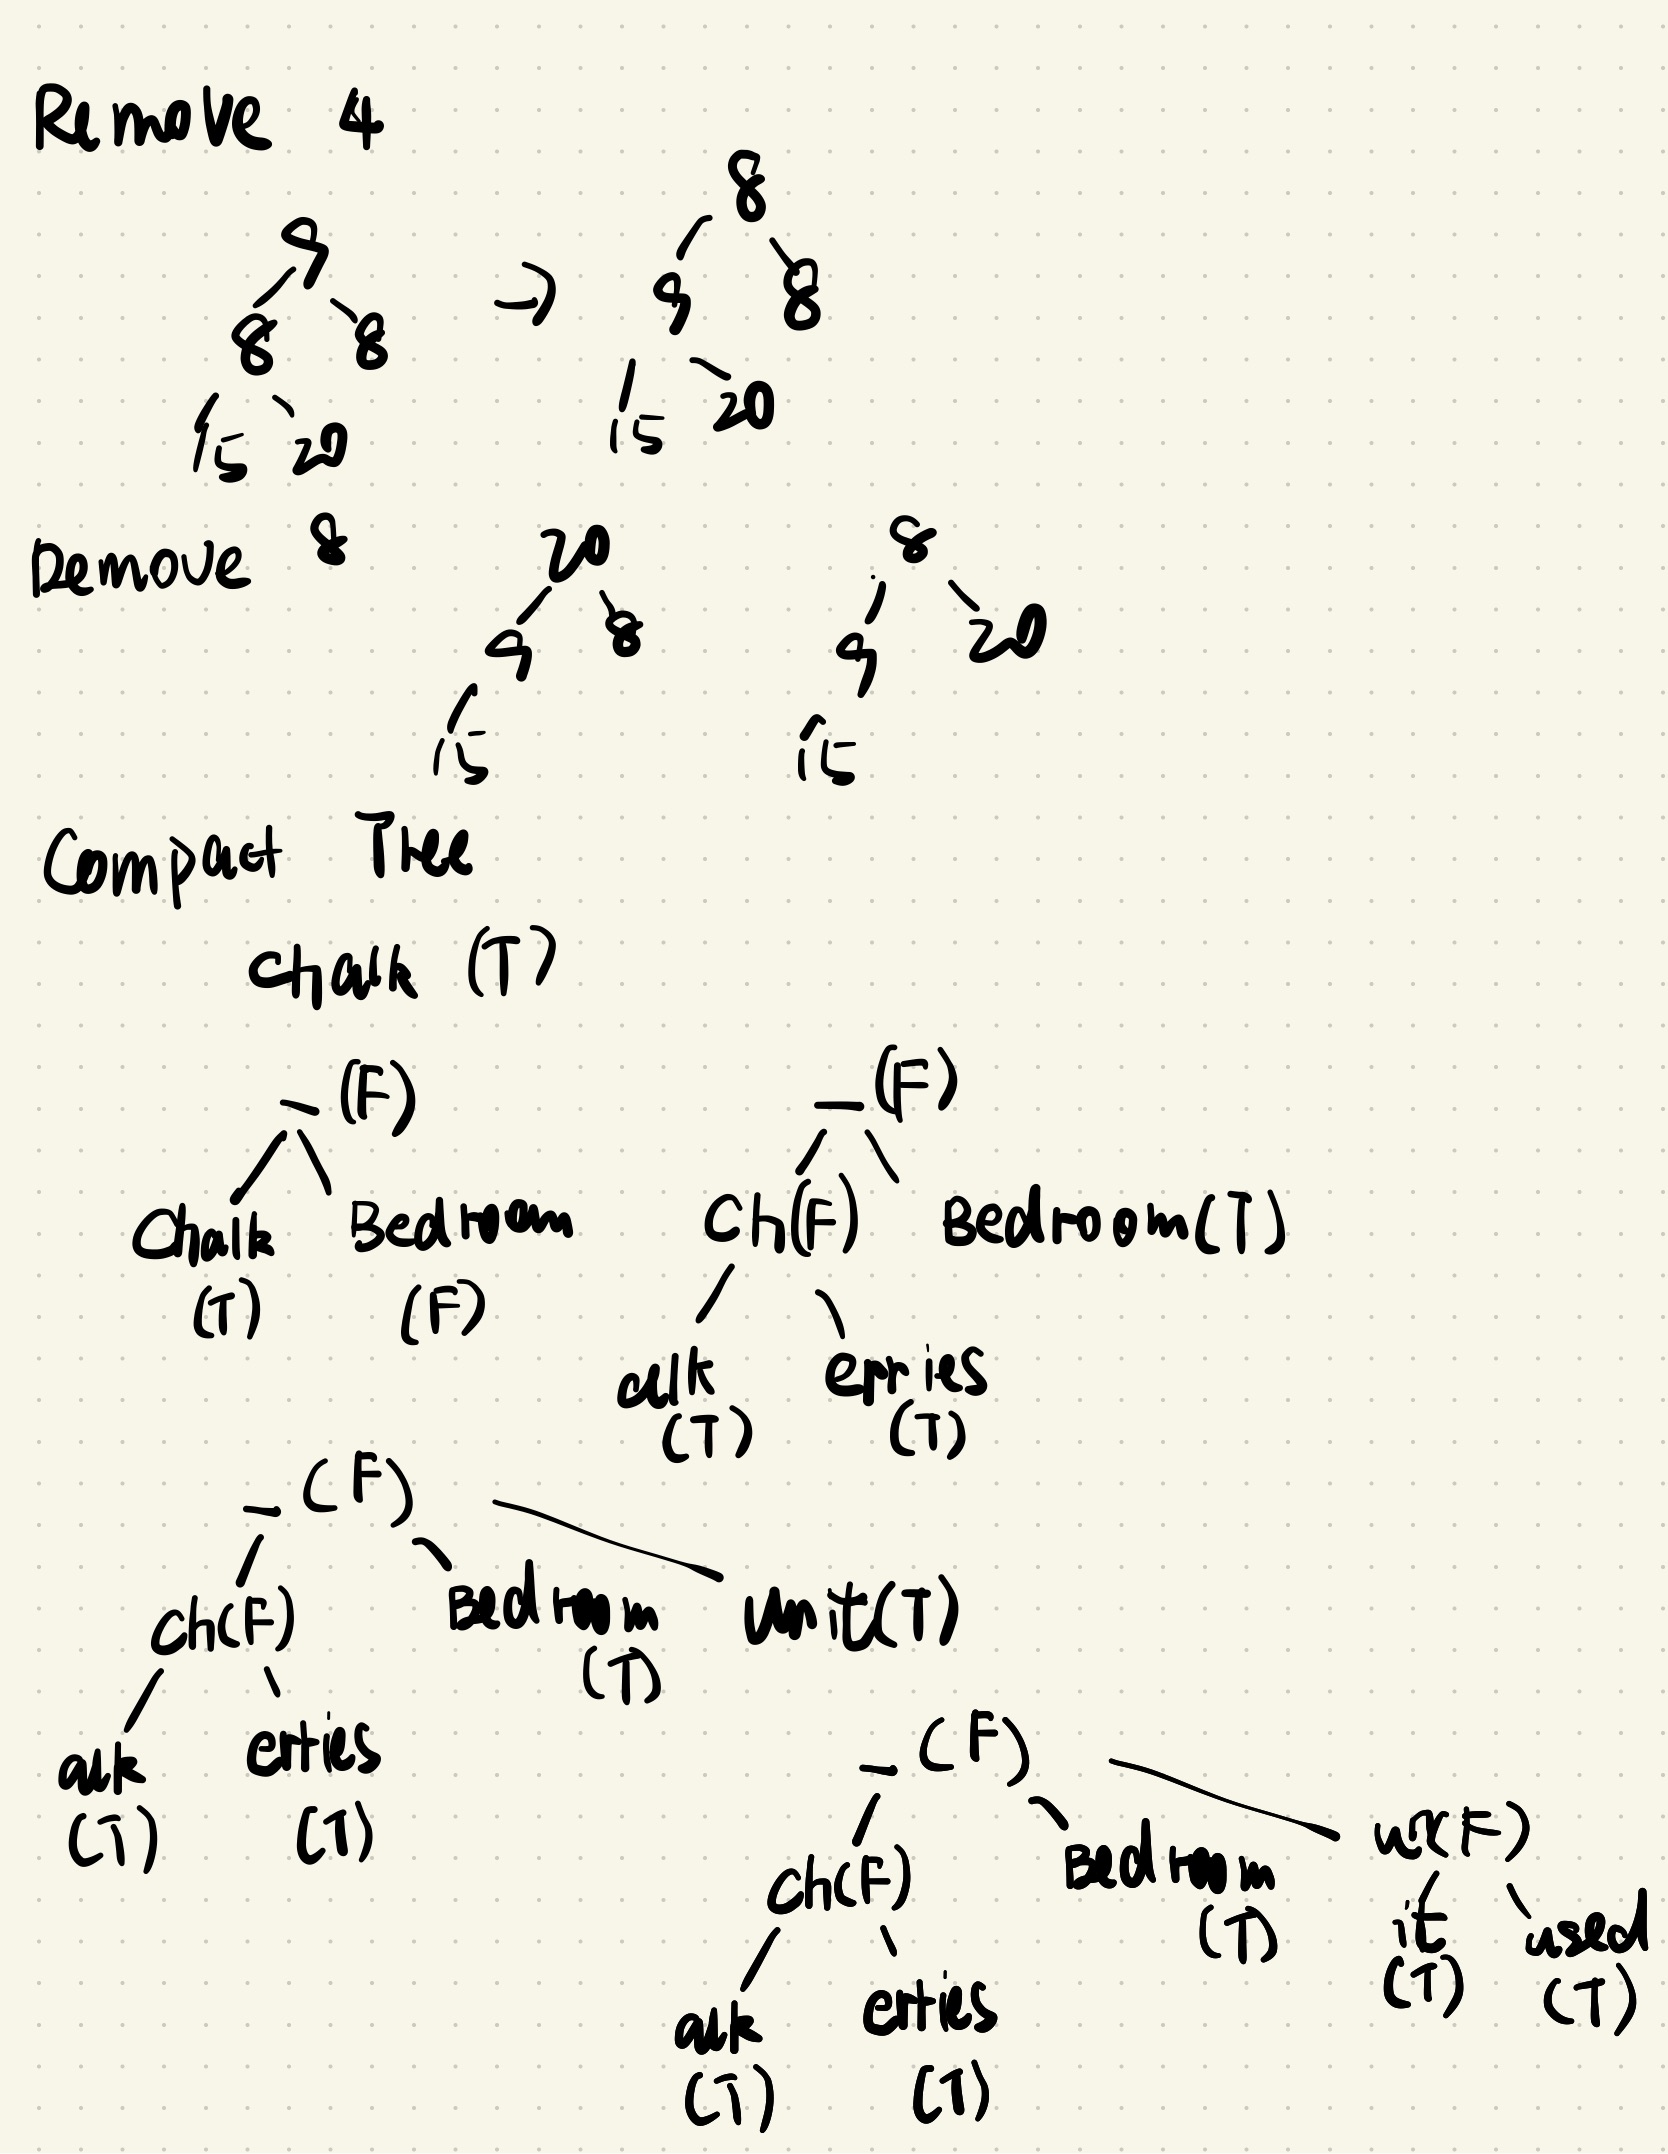 Remove 4
9
8 8
15 20
8
9 8
15 20
Remove 8
20
9 8
15
8
9 20
15
Compact Tree
Chalk (T)
(F)
Chalk Bedroom
(T) (F)
(F)
Ch(F) Bedroom(T)
alk erries
(T) (T)
(F)
Ch(F) Bedroom Unit(T)
(T)
alk erties
(T) (T)
(F)
Ch(F) Bedroom un(F)
(T) it used
(T) (T)
alk erties
(T) (T)